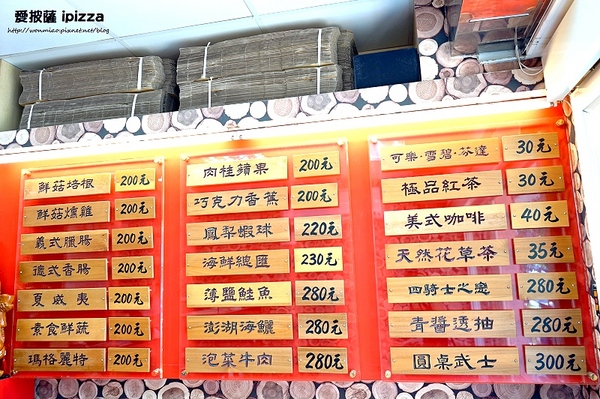 愛披薩 ipizza
http://wonmiao.pixnet.net/blog
鮮菇培根 200元
鮮菇燻雞 200元
義式臘腸 200元
德式香腸 200元
夏威夷 200元
素食鮮蔬 200元
瑪格麗特 200元
肉桂蘋果 200元
巧克力香蕉 200元
鳳梨蝦球 220元
海鮮總匯 230元
薄鹽鮭魚 280元
澎湖海鱺 280元
泡菜牛肉 280元
可樂·雪碧·芬達 30元
極品紅茶 30元
美式咖啡 40元
天然花草茶 35元
四騎士之戀 280元
青醬透抽 280元
圓桌武士 300元